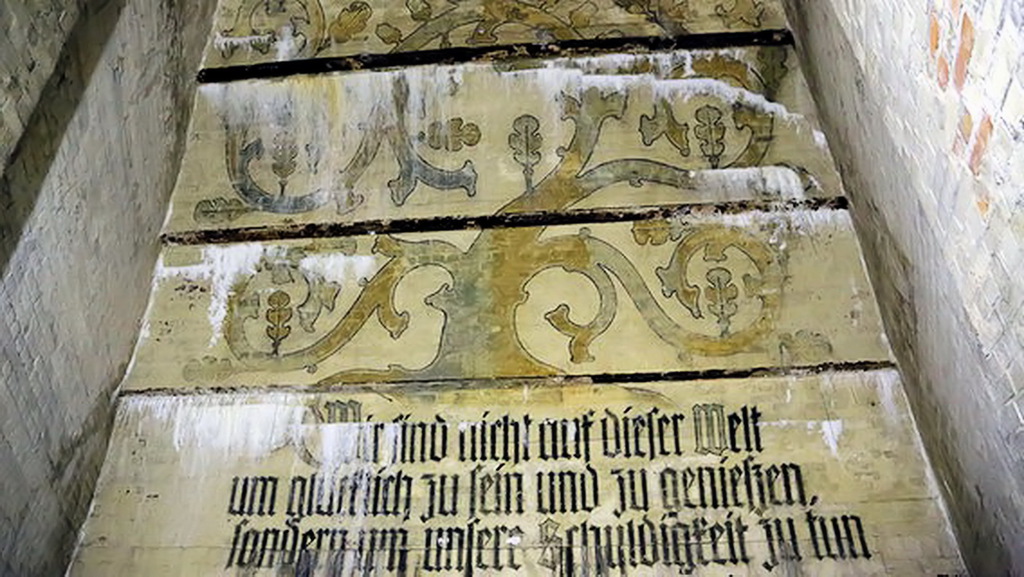 Wir sind nicht auf dieser Welt
um glücklich zu sein und zu genießen,
sondern um unsere Schuldigkeit zu tun